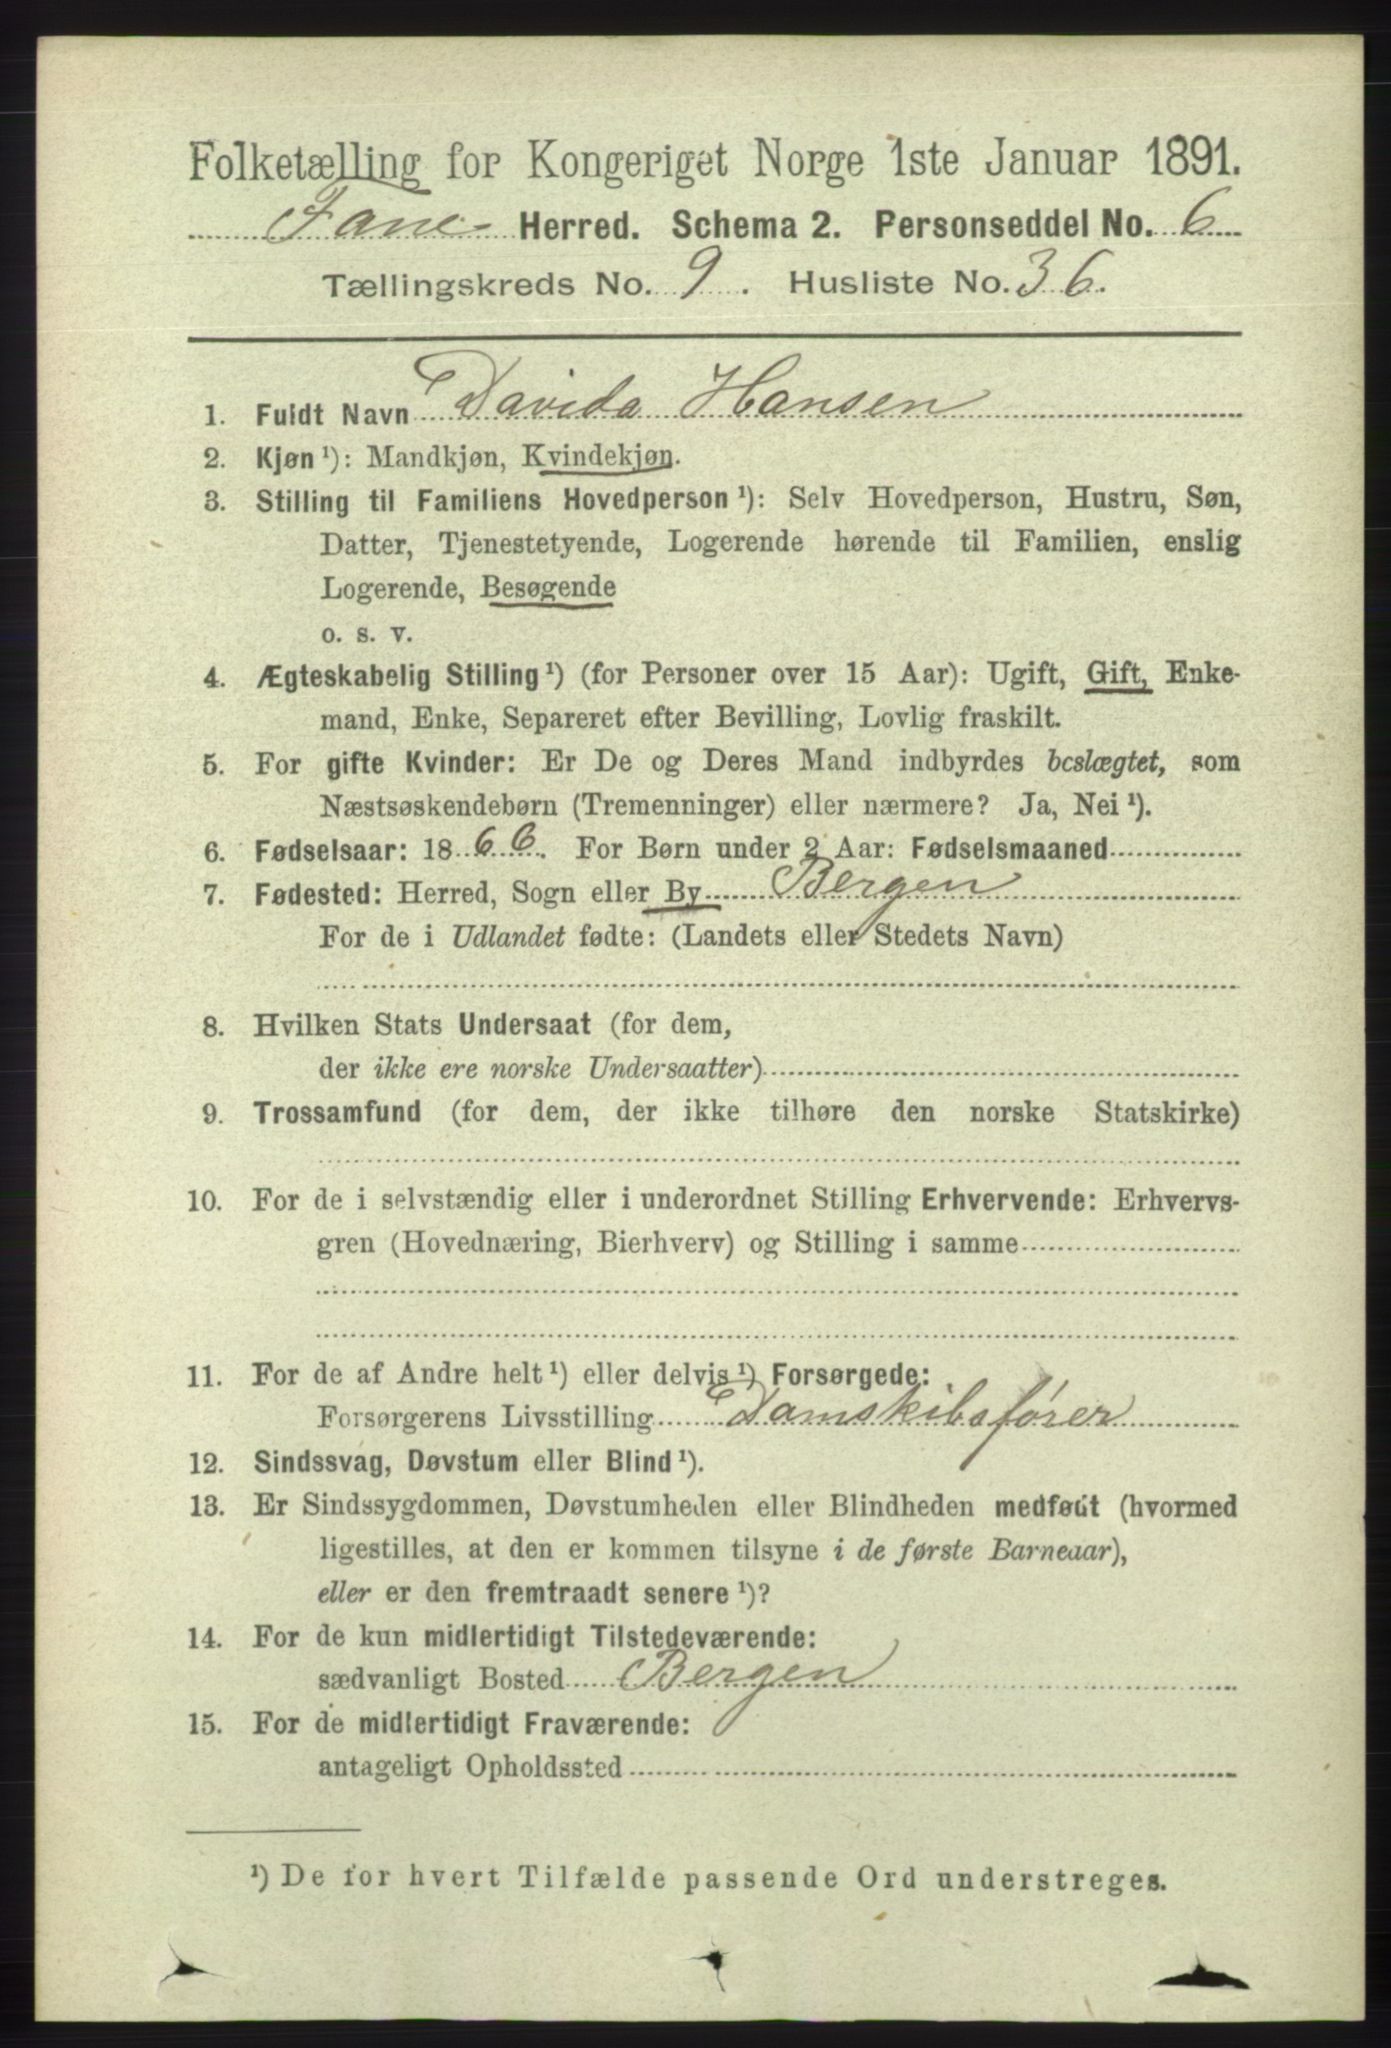 Folketælling for Kongeriget Norge 1ste Januar 1891.
Fane Herred. Schema 2. Personseddel No. 6
Tællingskreds No. 9. Husliste No. 36.
1. Fuldt Navn Davida Hansen
2. Kjøn ¹): Mandkjøn, Kvindekjøn.
3. Stilling til Familiens Hovedperson ¹): Selv Hovedperson, Hustru, Søn,
Datter, Tjenestetyende, Logerende hørende til Familien, enslig
Logerende, Besøgende
o. s. v.
4. Ægteskabelig Stilling ¹) (for Personer over 15 Aar): Ugift, Gift, Enke-
mand, Enke, Separeret efter Bevilling, Lovlig fraskilt.
5. For gifte Kvinder: Er De og Deres Mand indbyrdes beslægtet, som
Næstsøskendebørn (Tremenninger) eller nærmere? Ja, Nei ¹).
6. Fødselsaar: 1866. For Børn under 2 Aar: Fødselsmaaned
7. Fødested: Herred, Sogn eller By Bergen
For de i Udlandet fødte: (Landets eller Stedets Navn)
8. Hvilken Stats Undersaat (for dem,
der ikke ere norske Undersaatter)
9. Trossamfund (for dem, der ikke tilhøre den norske Statskirke)
10. For de i selvstændig eller i underordnet Stilling Erhvervende: Erhvervs-
gren (Hovednæring, Bierhverv) og Stilling i samme
11. For de af Andre helt ¹) eller delvis ¹) Forsørgede:
Forsørgerens Livsstilling Damskibsfører
12. Sindssvag, Døvstum eller Blind ¹).
13. Er Sindssygdommen, Døvstumheden eller Blindheden medfødt (hvormed
ligestilles, at den er kommen tilsyne i de første Barneaar),
eller er den fremtraadt senere ¹)?
14. For de kun midlertidigt Tilstedeværende:
sædvanligt Bosted Bergen
15. For de midlertidigt Fraværende:
antageligt Opholdssted
¹) De for hvert Tilfælde passende Ord understreges.